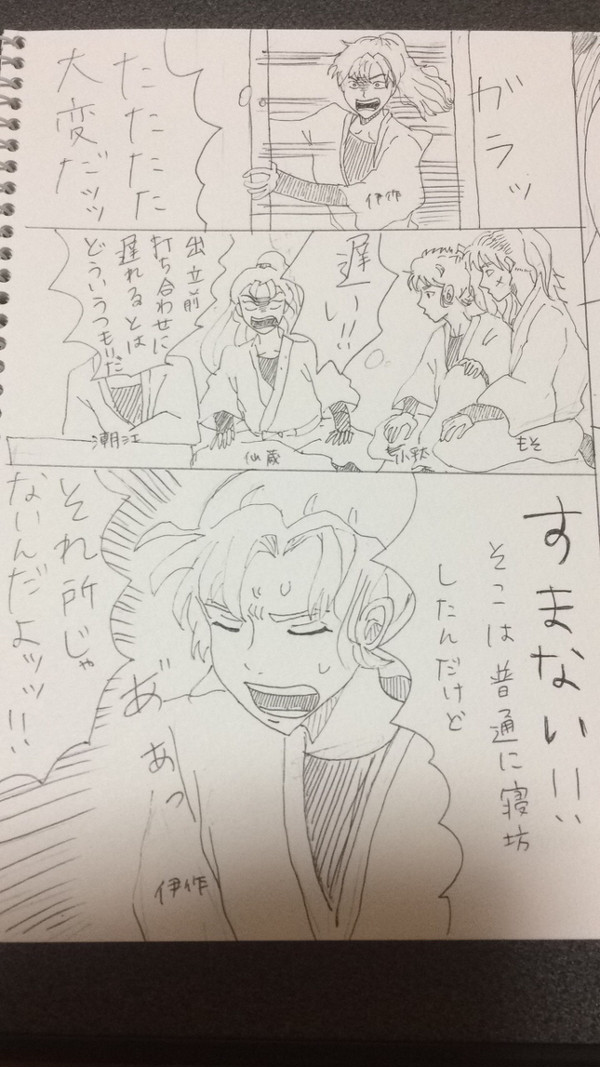 ガラッ
伊作
たたたた
大変だッッ
遅い!!
もそ
小平太
仙蔵
出立前
打ち合わせに
遅れるとは
どういうつもりだ
潮江
すまない!!
そこは普通に寝坊
したんだけど
あ゛
あっ
伊作
それ所じゃ
ないんだよッッ!!